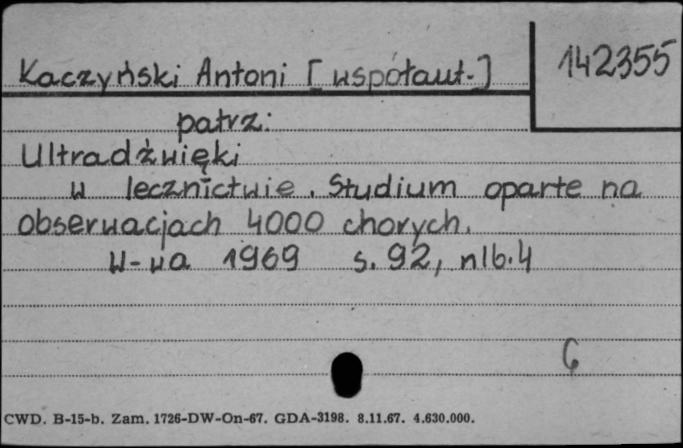 Kaczyński Antoni [współaut.] 142355
patrz:
Ultradźwięki
w lecznictwie. Studium oparte na
obserwacjach 4000 chorych.
W-wa 1969 s. 92, nlb. 4
G
CWD. B-15-b. Zam. 1726-DW-On-67. GDA-3198. 8.11.67. 4.630.000.